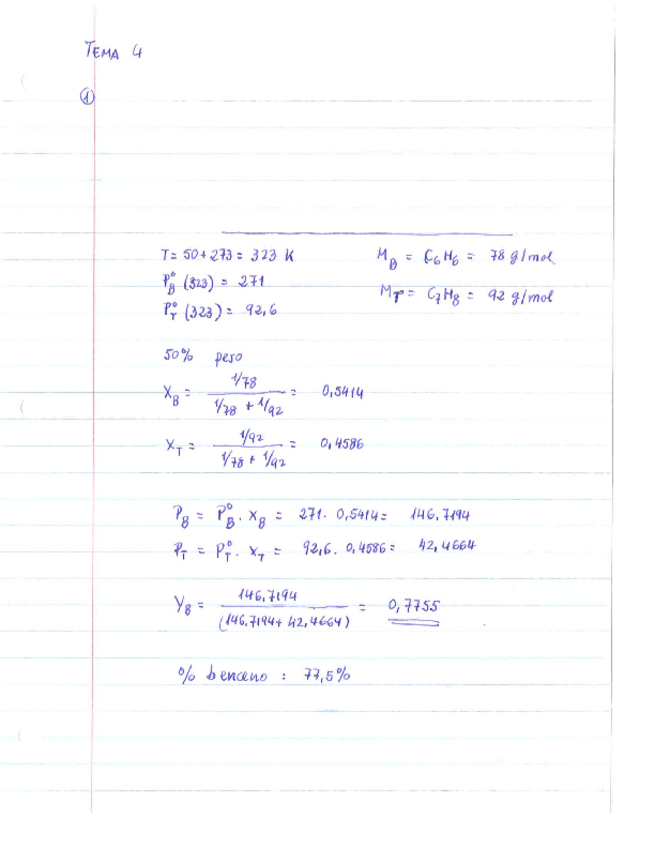 TEMA 4
1
T = 50 + 273 = 323 K
M_B = C6H6 = 78 g/mol
P°_B (323) = 271
M_T = C7H8 = 92 g/mol
P°_T (323) = 92,6
50% peso
X_B = (1/78) / (1/78 + 1/92) = 0,5414
X_T = (1/92) / (1/78 + 1/92) = 0,4586
P_B = P°_B · X_B = 271 · 0,5414 = 146,7194
P_T = P°_T · X_T = 92,6 · 0,4586 = 42,4664
Y_B = 146,7194 / (146,7194 + 42,4664) = 0,7755
% benceno : 77,5%